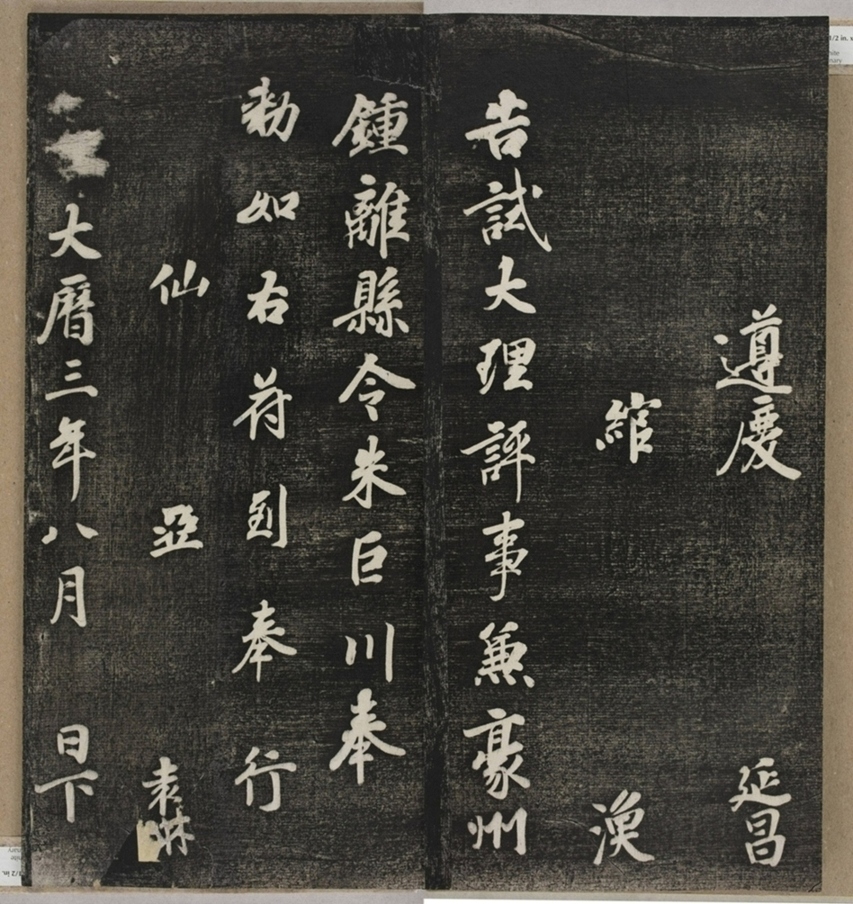 遵慶 延昌
綰 渙
告試大理評事兼豪州
鍾離縣令朱巨川奉
勑如右符到奉行
仙 亞 袁琳
大曆三年八月 日下